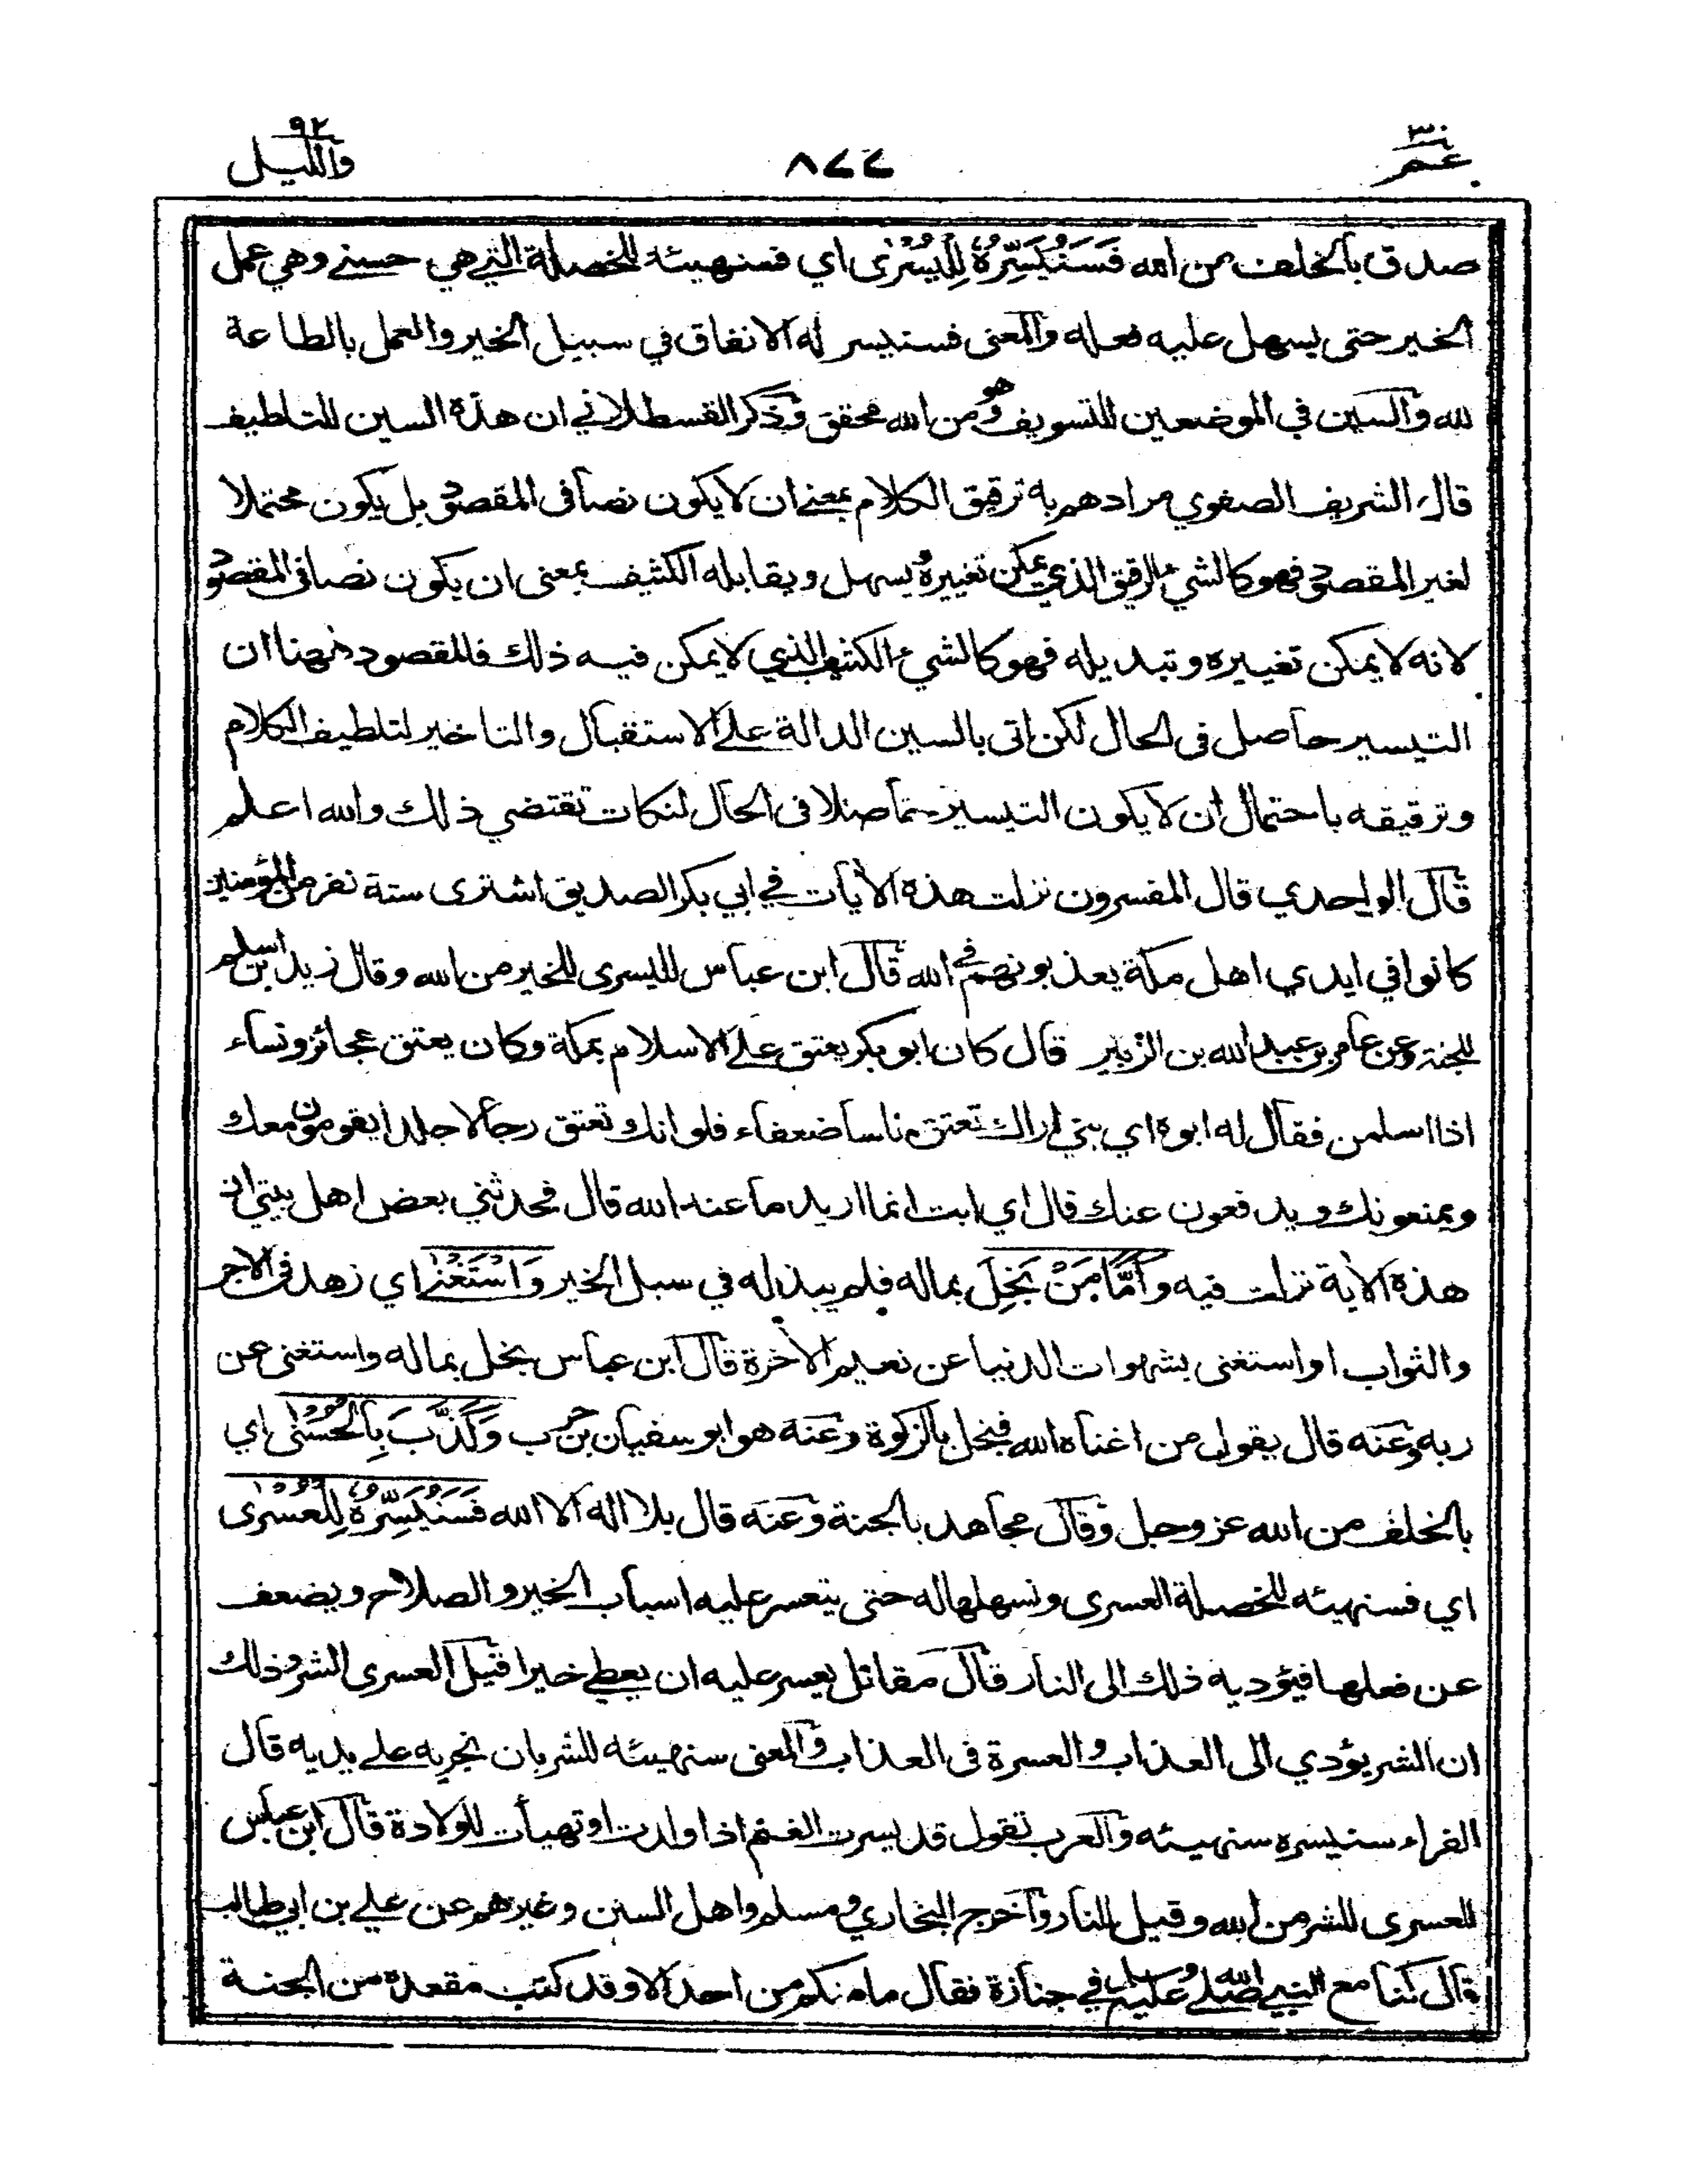 عم ٣٠
٨٧٧
والليل ٩٢
صدق بالخلف من الله فَسَنُيَسِّرُهُ لِلْيُسْرٰى اي فسنهيئه للخصلة التي هي حسنى وهي عمل
الخير حتى يسهل عليه فعله والمعنى فسنيسر له الانفاق في سبيل الخير والعمل بالطاعة
لله والسين في الموضعين للتسويف وهو من الله محقق وذكر القسطلاني ان هذه السين للتلطيف
قال الشريف الصفوي مرادهم به ترقيق الكلام بمعنى ان لا يكون نصا في المقصود بل يكون محتملا
لغير المقصود فهو كالشيء الرقيق الذي يمكن تغييره ويسهل ويقابله الكثيف بمعنى ان يكون نصا في المقصود
لانه لا يمكن تغييره وتبديله فهو كالشيء الكثيف الذي لا يمكن فيه ذلك فالمقصود ههنا ان
التيسير حاصل في الحال لكن اتى بالسين الدالة على الاستقبال والتاخير لتلطيف الكلام
وترقيقه باحتمال ان لا يكون التيسير حاصلا في الحال لنكات تقتضي ذلك والله اعلم
قال الواحدي قال المفسرون نزلت هذه الآيات في ابي بكر الصديق اشترى ستة نفر من المؤمنين
كانوا في ايدي اهل مكة يعذبونهم في الله قال ابن عباس لليسرى للخير من الله وقال زيد بن اسلم
للجنة وعن عامر بن عبد الله بن الزبير قال كان ابو بكر يعتق على الاسلام بمكة وكان يعتق عجائز ونساء
اذا اسلمن فقال له ابوه اي بني اراك تعتق ناسا ضعفاء فلو انك تعتق رجالا جلدا يقومون معك
ويمنعونك ويدفعون عنك قال اي ابت انما اريد ما عند الله قال فحدثني بعض اهل بيتي ان
هذه الآية نزلت فيه وَاَمَّا مَنْ بَخِلَ بماله فلم يبذله في سبل الخير وَاسْتَغْنٰى اي زهد في الاجر
والثواب او استغنى بشهوات الدنيا عن نعيم الآخرة قال ابن عباس بخل بماله واستغنى عن
ربه وعنه قال يقول من اغناه الله فبخل بالزكوة وعنه هو ابو سفيان بن حرب وَكَذَّبَ بِالْحُسْنٰى اي
بالخلف من الله عز وجل وقال مجاهد بالجنة وعنه قال بلا اله الا الله فَسَنُيَسِّرُهُ لِلْعُسْرٰى
اي فسنهيئه للخصلة العسرى ونسهلها له حتى يتعسر عليه اسباب الخير والصلاح ويضعف
عن فعلها فيؤديه ذلك الى النار قال مقاتل يعسر عليه ان يعطي خيرا قيل العسرى الشر وذلك
ان الشر يؤدي الى العذاب والعسرة في العذاب والمعنى سنهيئه للشر بان نجريه على يديه قال
الفراء سنيسره سنهيئه والعرب تقول قد يسرت الغنم اذا ولدت او تهيأت للولادة قال ابن عباس
للعسرى للشر من الله وقيل للنار واخرج البخاري ومسلم واهل السنن وغيرهم عن علي بن ابي طالب
قال كنا مع النبي صلى الله عليه وسلم في جنازة فقال ما منكم من احد الا وقد كتب مقعده من الجنة